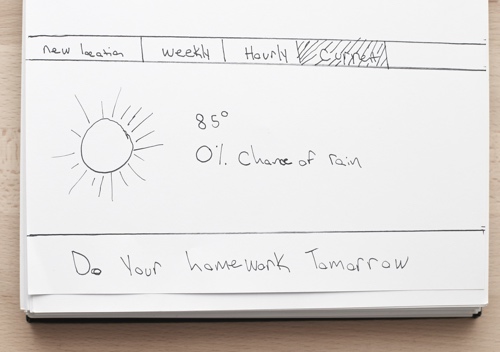 new location weekly Hourly Current
85°
0% Chance of rain
Do Your homework Tomorrow